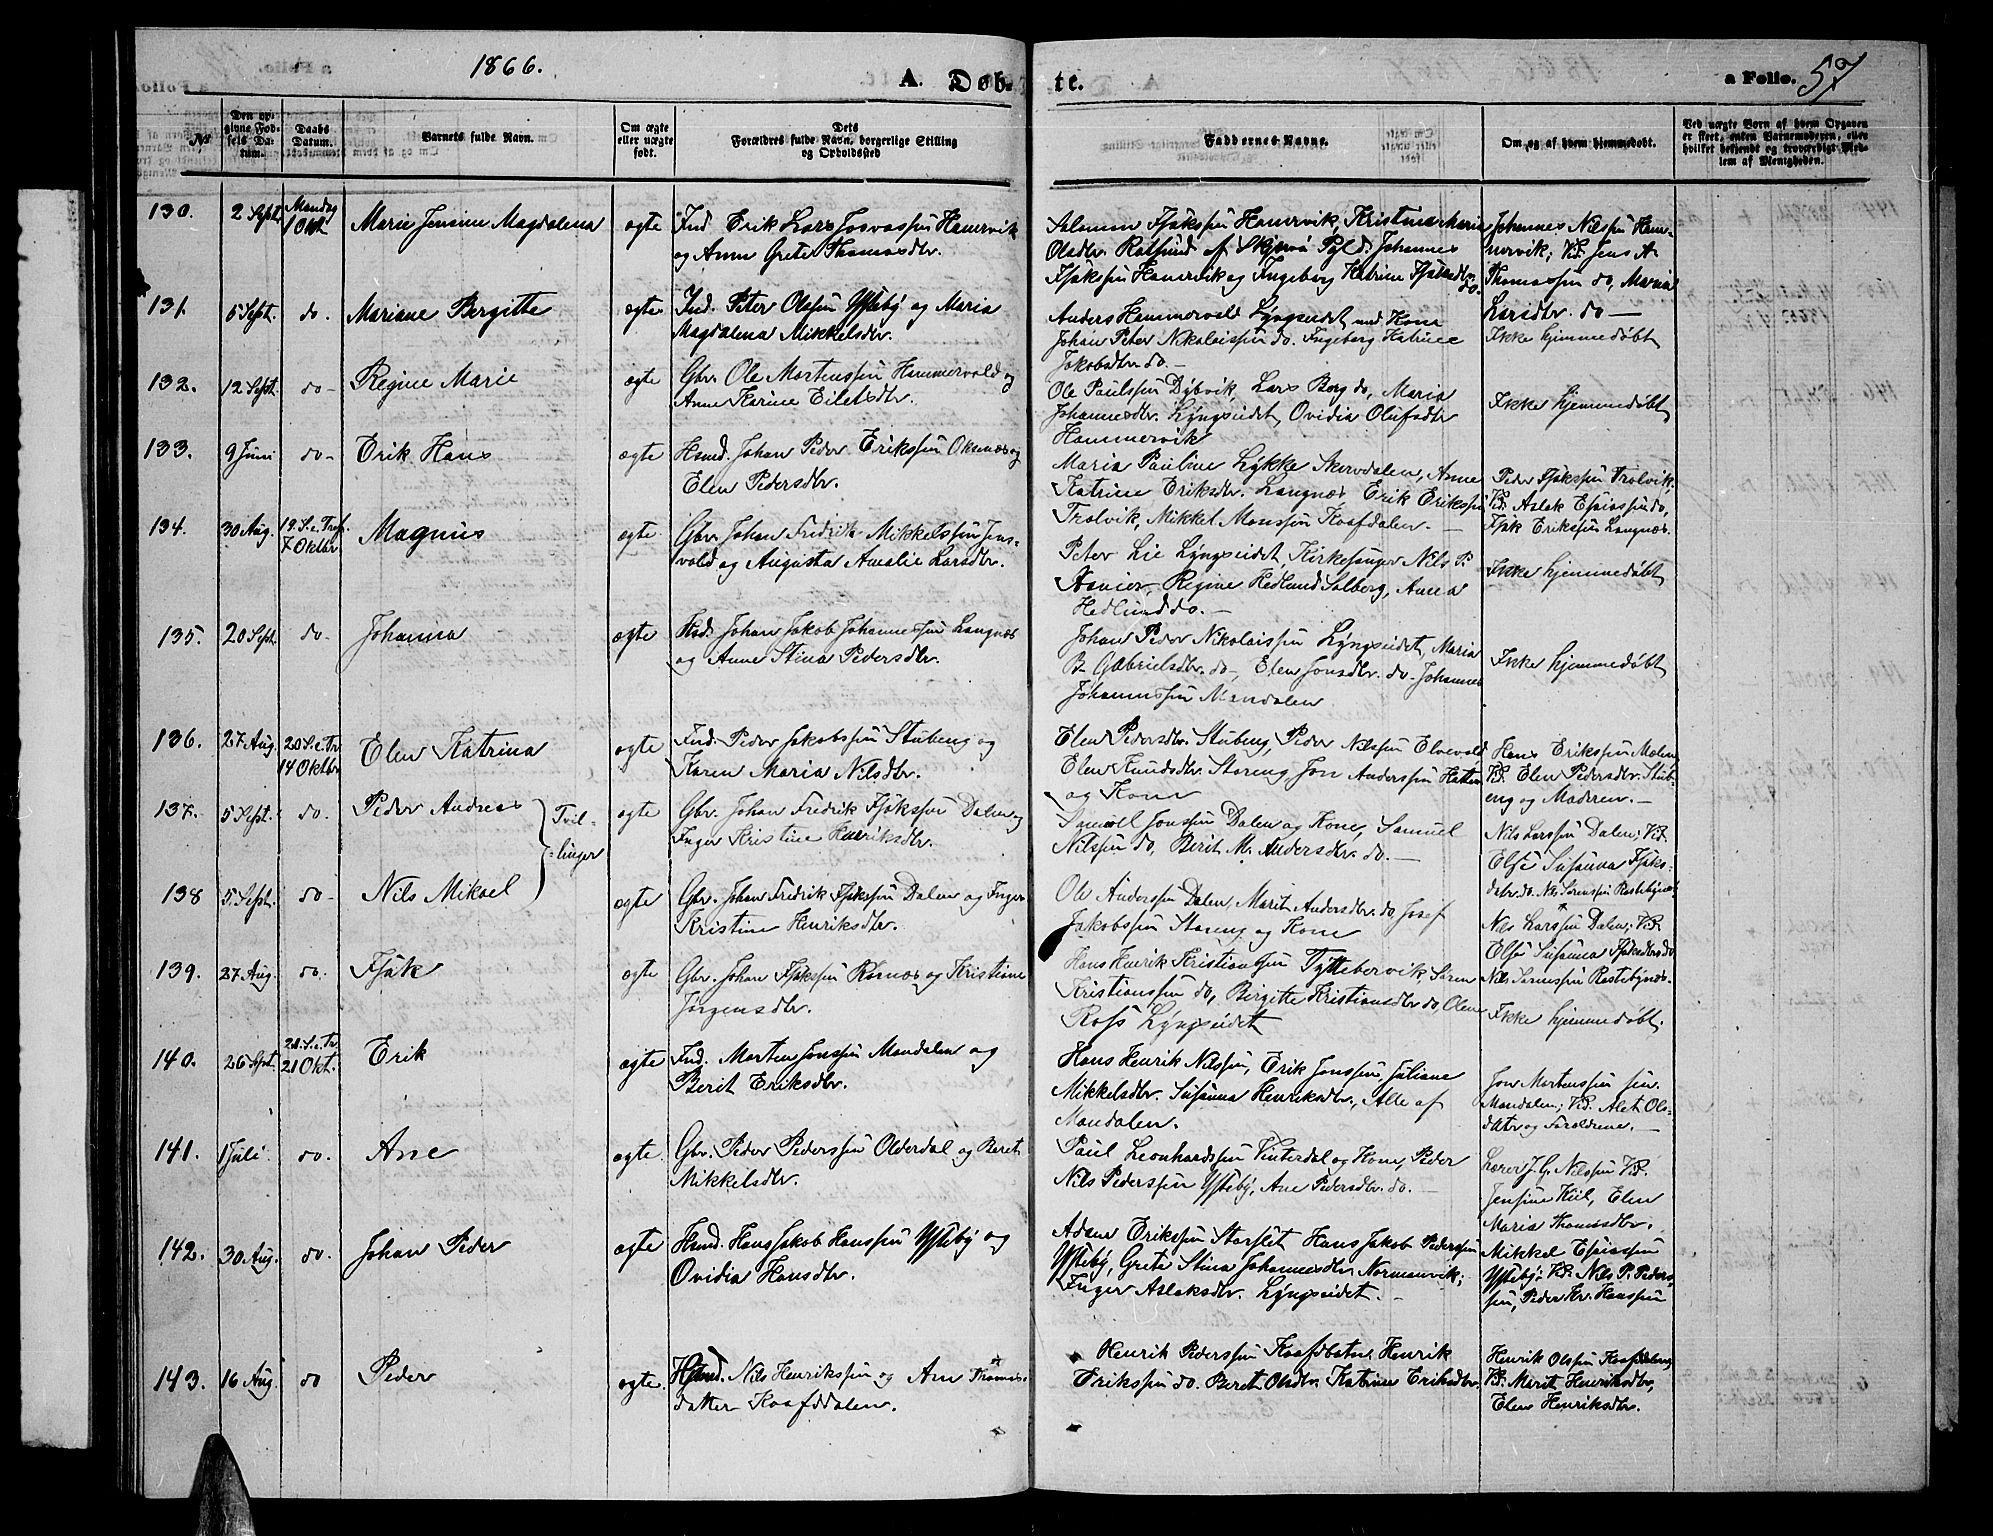 1866.
A. Døb-
te.
a Folio. 57
No
Den op-
givne Fød-
sels Da-
tum.
Daabs
Datum.
Barnets fulde Navn.
Om ægte
eller uægte
født.
Dets
Forældres fulde Navn, borgerlige Stilling
og Opholdssted
Faddernes Navne.
Om og af hvem hjemmedøbt.
Ved uægte Børn af hvem Opgaven
er skeet, enten Barnemoderen, eller
hvilket bekjendt og troværdigt Med-
lem af Menigheden.
130. 2 Sept. Mandag
1 Okt. Marie Jensine Magdalena ægte Ind. Erik Lars Josvassøn Hamervik
og Anne Grete Thomasdtr.
Salomon Isakssøn Hamervik, Kristine Maria
Olsdtr. Rotsund af Skjervø Pgld; Johannes
Isakssøn Hamervik og Ingeborg Katrine Isaksdtr. do.
Johannes Nilssøn Ham-
mervik; Vid. Jens A.
Thomassøn do, Maria
Larsdtr. do —
131. 5 Sept. do. Mariane Bergitte ægte Ind. Peter Olssøn Ysteby og Maria
Magdalena Mikkelsdtr.
Anders Hammervold Lyngseidet med Kone
Johan Peter Nikolaissøn do. Ingeborg Katrine
Jakobsdtr. do. —
Ikke hjemmedøbt
132. 12 Sept. do- Regine Marie ægte Gbr. Ole Mortenssøn Hammervold og
Anne Karine Eilertsdtr.
Ole Paulssøn Dybvik, Lars Berg do, Maria
Johannesdtr. Lyngseidet, Ovidia Olufsdtr
Hammervik
Ikke hjemmedøbt
133. 9 Juni do- Erik Hans ægte Hsmd. Johan Peder Erikssøn Oksenæs og
Elen Pedersdtr.
Maria Pauline Lykke Skervdalen, Anne
Katrine Eriksdtr. Langnæs Erik Erikssøn
Trolvik, Mikkel Monssøn Kaafdalen. —
Peder Isakssøn Trolvik,
Vd. Aslak Esaiassøn do,
Isak Erikssøn Langnæs.
134. 30 Aug. 19 S. e. Tref.
7 Oktbr. Magnus ægte Gbr. Johan Fredrik Mikkelssøn Jens-
vold og Augusta Amalie Larsdtr.
Peter Lie Lyngseidet, Kirkesanger Nils P.
Regine Hedlund Solberg, Anna
Hedlund do. —
Ikke hjemmedøbt
135. 20 Sept. do. Johanna ægte Hsd. Johan Jakob Johannessøn Langnæs
og Anne Stina Pedersdtr.
Johan Peder Nikolaissøn Lyngseidet, Maria
B. Gabrielsdtr. do-, Elen Jonsdtr. do- Johannes
Johannessøn Mandalen
Ikke hjemmedøbt
136. 27 Aug. 20 S. e. Tr.
14 Oktbr. Elen Katrina ægte Ind. Peder Jakobssøn Stubeng og
Karen Maria Nilsdtr.
Elen Pedersdtr. Stubeng, Peder Nilssøn Elvevold
Elen Knudsdtr. Storeng, Jon Anderssøn Hatten
og Kone
Hans Erikssøn Malen
Vd. Elen Pedersdtr. Stub-
eng og Moderen. —
137. 5 Sept. do. Peder Andreas Tvil-
-linger ægte Gbr. Johan Fredrik Isakssøn Dalen og
Inger Kristine Henriksdtr.
Samoel Jonssøn Dalen og Kone, Samuel
Nilssøn do, Berit M. Andersdtr. do. —
Nils Larssøn Dalen; Vd.
Else Susanna Isaks-
datr. do. Nils Sørenssøn Rastebynæs
138 5 Sept. do- Nils Mikael ægte Gbr. Johan Fredrik Isakssøn Dalen og Inger
Kristine Henriksdtr.
Ole Anderssøn Dalen, Marit Andersdtr. do, Josef
Jakobssøn Storeng og Kone
Nils Larssøn Dalen; Vd.
Else Susanna Isaksdtr. do
Nils Sørenssøn Rastebynæs.
139. 27 Aug. do. Isak ægte Gbr. Johan Isakssøn Rørnæs og Kristiane
Jørgensdtr.
Hans Henrik Kristianssøn Tyttebærvik, Søren
Kristianssøn do, Birgitte Kristiansdtr do, Olene
Ross Lyngseidet
Ikke hjemmedøbt.
140. 26 Sept. 21 S. e. Tr.
21 Okt. Erik ægte Ind. Morten Jonssøn Mandalen og
Berit Eriksdtr.
Hans Henrik Nilssøn, Erik Jonssøn, Juliane
Mikkelsdtr. Susanna Henriksdtr., Alle af
Mandalen.
Jon Mortenssøn sen.
Mandalen; Vd. Alet Ols-
datr og Forældrene. —
141. 1 Juli. do. Ane ægte. Gbr. Peder Pederssøn Olderdal og Beret
Mikkelsdtr.
Paul Leonhardssøn Vinterdal og Kone, Peder
Nils Pederssøn Ysteby, Ane Pedersdtr. do. —
Lærer J. G. Nilssøn Vd.
Jensine Kiil, Elen
Maria Thomasdtr.
142. 30 Aug. do. Johan Peder ægte Hsmd. Hans Jakob Hanssøn Ysteby og
Ovidia Hansdtr.
Adam Erikssøn Storslet Hans Jakob Pederssøn
Ysteby, Grete Stina Johannesdtr. Normanvik;
Inger Aslaksdtr. Lyngseidet. —
Mikkel Esaiassøn
Ysteby; Vd. Nils P. Peders-
søn, Peder Kr. Hanssøn
143. 16 Aug. do Peder ægte. Hsmd. Nils Henrikssøn og Ane Thomas-
datter Kaafddalen.
Henrik Pederssøn Kaafdbotn. Henrik
Erikssøn do. Beret Olsdtr. Katrine Eriksdtr.
Henrik Olssøn Kaafdalen
Vd. Marit Henriksdtr,
Elen Henriksdtr.